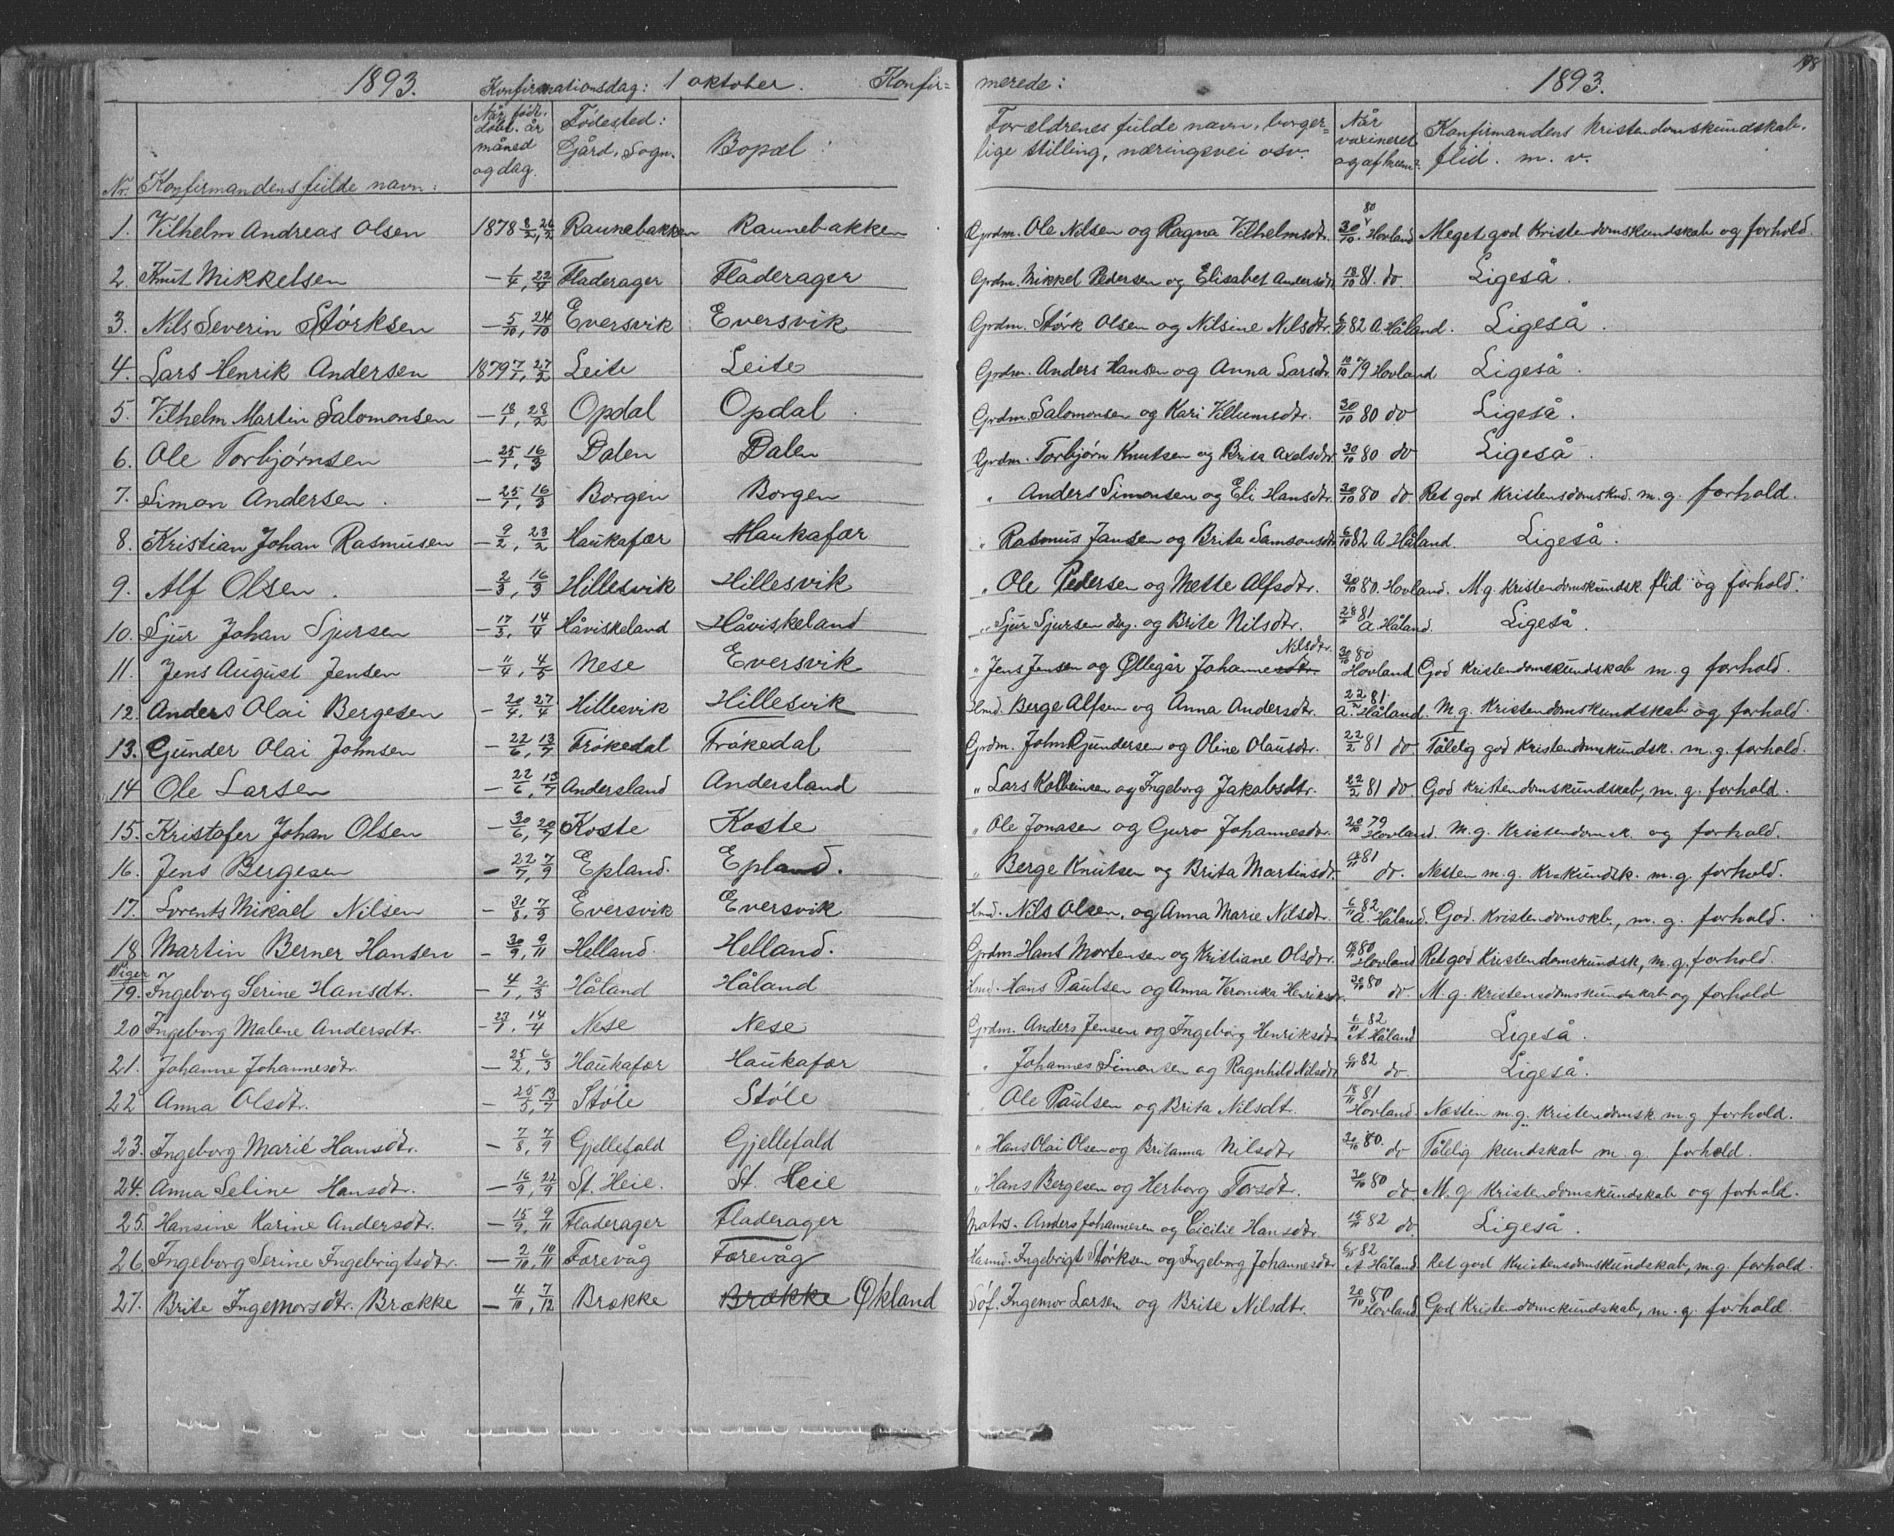 1893. Konfirmationsdag: 1 oktober. Konfir= merede: 1893. 198
Nr. Konfirmandens fulde navn: Når født, døbt. år måned og dag. Fødested: Gård, Sogn. Bopæl: Forældrenes fulde navn, borger=lige stilling, næringsvei osv. Når vaxineret og af hvem? Konfirmandens kristendomskundskab, flid. m. v.
1. Vilhelm Andreas Olsen 1878 8/2, 26/2 Raunebakken Raunebakken Grdm. Ole Nilsen og Ragna Vilhelmsdtr. 30/10 80 v Hovland Meget god Kristendomskundskab og forhold.
2. Knut Mikkelsen — 1/4, 22/4 Fladerager Fladerager Grdm. Mikkel Pedersen og Elisabet Andersdtr 18/10 81. do. Ligeså.
3. Nils Severin Størksen — 5/10, 24/10 Eversvik Eversvik Grdm. Størk Olsen og Nilsine Nilsdtr. 6/11 82 A. Håland. Ligeså.
4. Lars Henrik Andersen 1879 7/1, 27/2 Leite Leite Grdm. Anders Hansen og Anna Larsdtr. 10/10 79 Hovland Ligeså.
5. Vilhelm Martin Salomonsen — 18/1, 28/2 Opdal Opdal Grdm. Salomonsen og Kari Villumsdtr. 30/10 80 do Ligeså.
6. Ole Torbjørnsen — 25/1, 16/3 Dalen Dalen Grdm. Torbjørn Knutsen og Brita Axelsdtr 30/10 80 do Ligeså.
7. Simon Andersen. — 25/1, 16/3 Borgen Borgen " Anders Simonsen og Eli Hansdtr. 30/10 80 do. Ret god Kristensdomsknd. m. g. forhold.
8. Kristian Johan Rasmusen — 9/2, 23/2 Haukafær Haukafær " Rasmus Jansen og Brita Samsonsdtr 6/10 82 A Håland. Ligeså.
9. Alf Olsen. — 2/3, 16/3 Hillesvik Hillesvik " Ole Pedersen og Mette Alfsdtr. 30/10 80 Hovland. M g. Kristendomskundsk. flid og forhold.
10. Sjur Johan Sjursen — 17/3, 14/4 Håviskeland Håviskeland " Sjur Sjursen og Brite Nilsdtr. 81 A Håland. Ligeså.
11. Jens August Jensen — 11/4, 4/5 Nese Eversvik " Jens Jensen og Øllegår Johannesdtr. Nilsdtr. 30/10 80 Hovland God Kristendomskundskab m. g forhold.
12. Anders Olai Bergesen — 20/4, 27/4 Hillesvik Hillesvik Hmd. Berge Alfsen og Anna Andersdtr. 22/2 81. A. Håland. M g. Kristendomskundskab og forhold.
13. Gunder Olai Johnsen — 22/6, 13/7 Frøkedal Frøkedal Grdm. John Gundersen og Oline Olausdtr. 22/2 81 do Tålelig god Kristendomskundsk. m. g. forhold.
14 Ole Larsen — 22/6, 13/7 Andersland Andersland " Lars Kolbeinsen og Ingeborg Jakobsdtr. 22/2 81 do. God Kristendomskundskab, m. g. forhold.
15. Kristofer Johan Olsen — 30/6, 20/7 Koste Koste " Ole Jonasen og Guro Johannesdtr. 20/10 79 Hovland. M. g. Kristendomsk. og forhold.
16. Jens Bergesen — 22/7, 7/9 Epland. Epland. " Berge Knutsen og Brita Martinsdtr. 81 do. Nesten m. g. Kr.kundsk. m. g. forhold.
17. Lorents Mikael Nilsen — 31/8, 7/9 Eversvik Eversvik Hmd. Nils Olsen, og Anna Marie Nilsdtr. 6/11 82 A. Håland. God. Kristendomskb., m. g. forhold.
18 Martin Berner Hansen — 30/9, 9/11 Helland. Helland. Grdm Hans Mortensen og Kristiane Olsdtr. 80 Hovland Ret god Kristendomskundsk, m. g. forhold.
Piger
19. Ingeborg Serine Hansdtr. — 4/1, 2/3 Håland Håland Hmd. Hans Paulsen og Anna Veronika Henriksdtr. 30/10 80 do. M. g. Kristensdomskundskab og forhold
20 Ingeborg Malene Andersdtr. — 27/1, 14/4 Nese Nese Grdm. Anders Jensen og Ingeborg Henriksdtr 6/11 82 A Håland Ligeså.
21. Johanne Johannesdtr. — 25/2, 6/3 Haukafær Haukafær " Johannes Simonsen og Ragnhild Nilsdtr 6/11 82 do. Ligeså.
22 Anna Olsdtr. — 25/5, 13/7 Støle Støle " Ole Paulsen og Brita Nilsdtr. 18/11 81 Hovland. Næsten m. g. Kristendomsk m. g forhold.
23. Ingeborg Marie Hansdtr. — 7/8, 7/9 Gjellefald Gjellefald " Hans Olai Olsen og Britanna Nilsdtr 30/10 80. do Tålelig kundskab m. g. forhold.
24. Anna Seline Hansdtr. — 16/9, 22/9 St. Heie. St. Heie " Hans Bergesen og Herborg Torsdtr. 30/10 80 do. M. g Kristendomskundskab og forhold.
25. Hansine Karine Andersdtr. — 15/9, 9/11 Fladerager Fladerager Matrs. Anders Johannesen og Cicilie Hansdtr 82 do. Ligeså.
26. Ingeborg Serine Ingebrigtsdtr. — 2/10, 10/11 Færevåg Færevåg Husmd. Ingebrigt Størksen og Ingeborg Johannesdtr 82 A Håland Ret god Kristensdomskundskab, m. g. forhold.
27. Brite Ingemorsdtr. Brække — 4/10, 7/12 Brække Brække Økland Søf. Ingemor Larsen og Brite Nilsdtr. 20/10 80 Hovland God Kristendomskundskab, m. g. forhold.